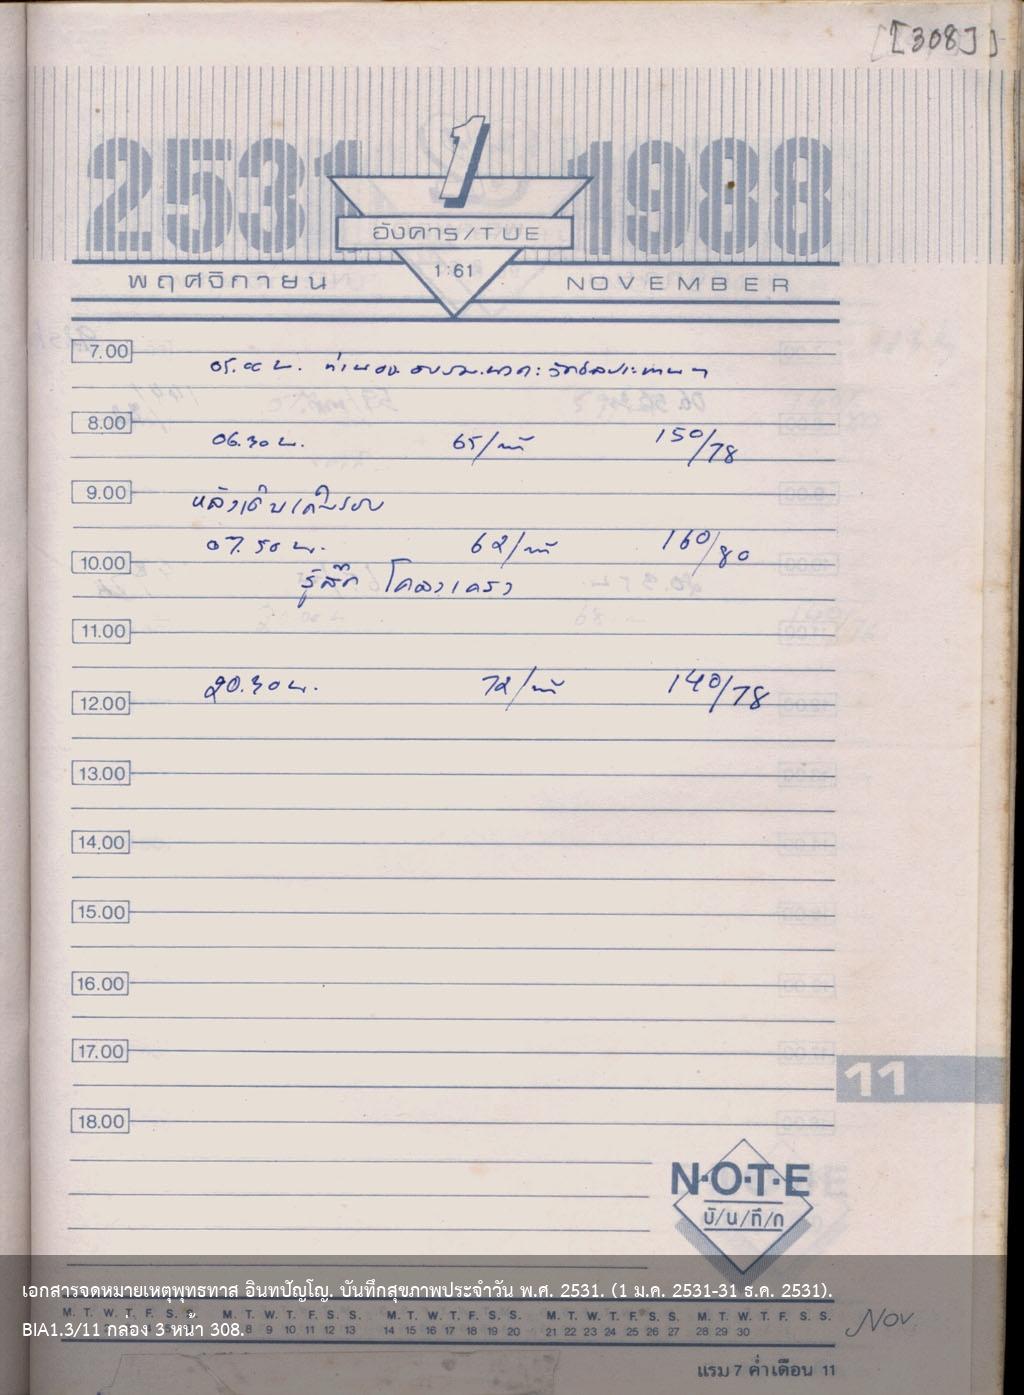 [308]
2531 1 1988
อังคาร/TUE
1:61
พฤศจิกายน NOVEMBER
7.00
05.00 น.
8.00
06.30 น. 65/นาที 150/78
9.00
หลังเดิน
07.50 น. 62/นาที 160/80
10.00
รู้สึก
11.00
20.30 น. 72/นาที 140/78
12.00
13.00
14.00
15.00
16.00
17.00
11
18.00
N·O·T·E
บั/น/ทึ/ก
เอกสารจดหมายเหตุพุทธทาส อินทปัญโญ. บันทึกสุขภาพประจำวัน พ.ศ. 2531. (1 ม.ค. 2531-31 ธ.ค. 2531).
M. T. W. T. F. S. S. M. T. W. T. F. S. S. M. T. W. T. F. S. S. M. T. W. T. F. S. S. M. T. W. T. F. S. S.
BIA1.3/11 กล่อง 3 หน้า 308.
8 9 10 11 12 13 14 15 16 17 18 19 20 21 22 23 24 25 26 27 28 29 30
Nov.
แรม 7 ค่ำเดือน 11